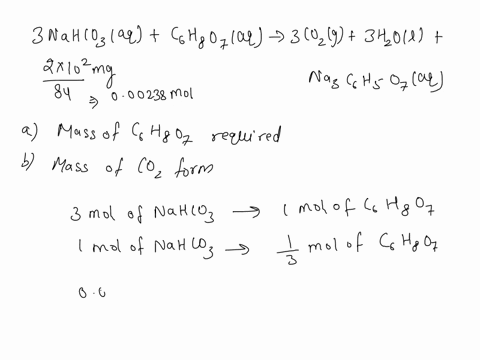 3NaHCO3(aq) + C6H8O7(aq) → 3CO2(g) + 3H2O(l) +
2×10²mg/84 ⇒ 0.00238 mol
Na3C6H5O7(aq)
a) Mass of C6H8O7 required
b) Mass of CO2 form
3 mol of NaHCO3 → 1 mol of C6H8O7
1 mol of NaHCO3 → 1/3 mol of C6H8O7
0.0